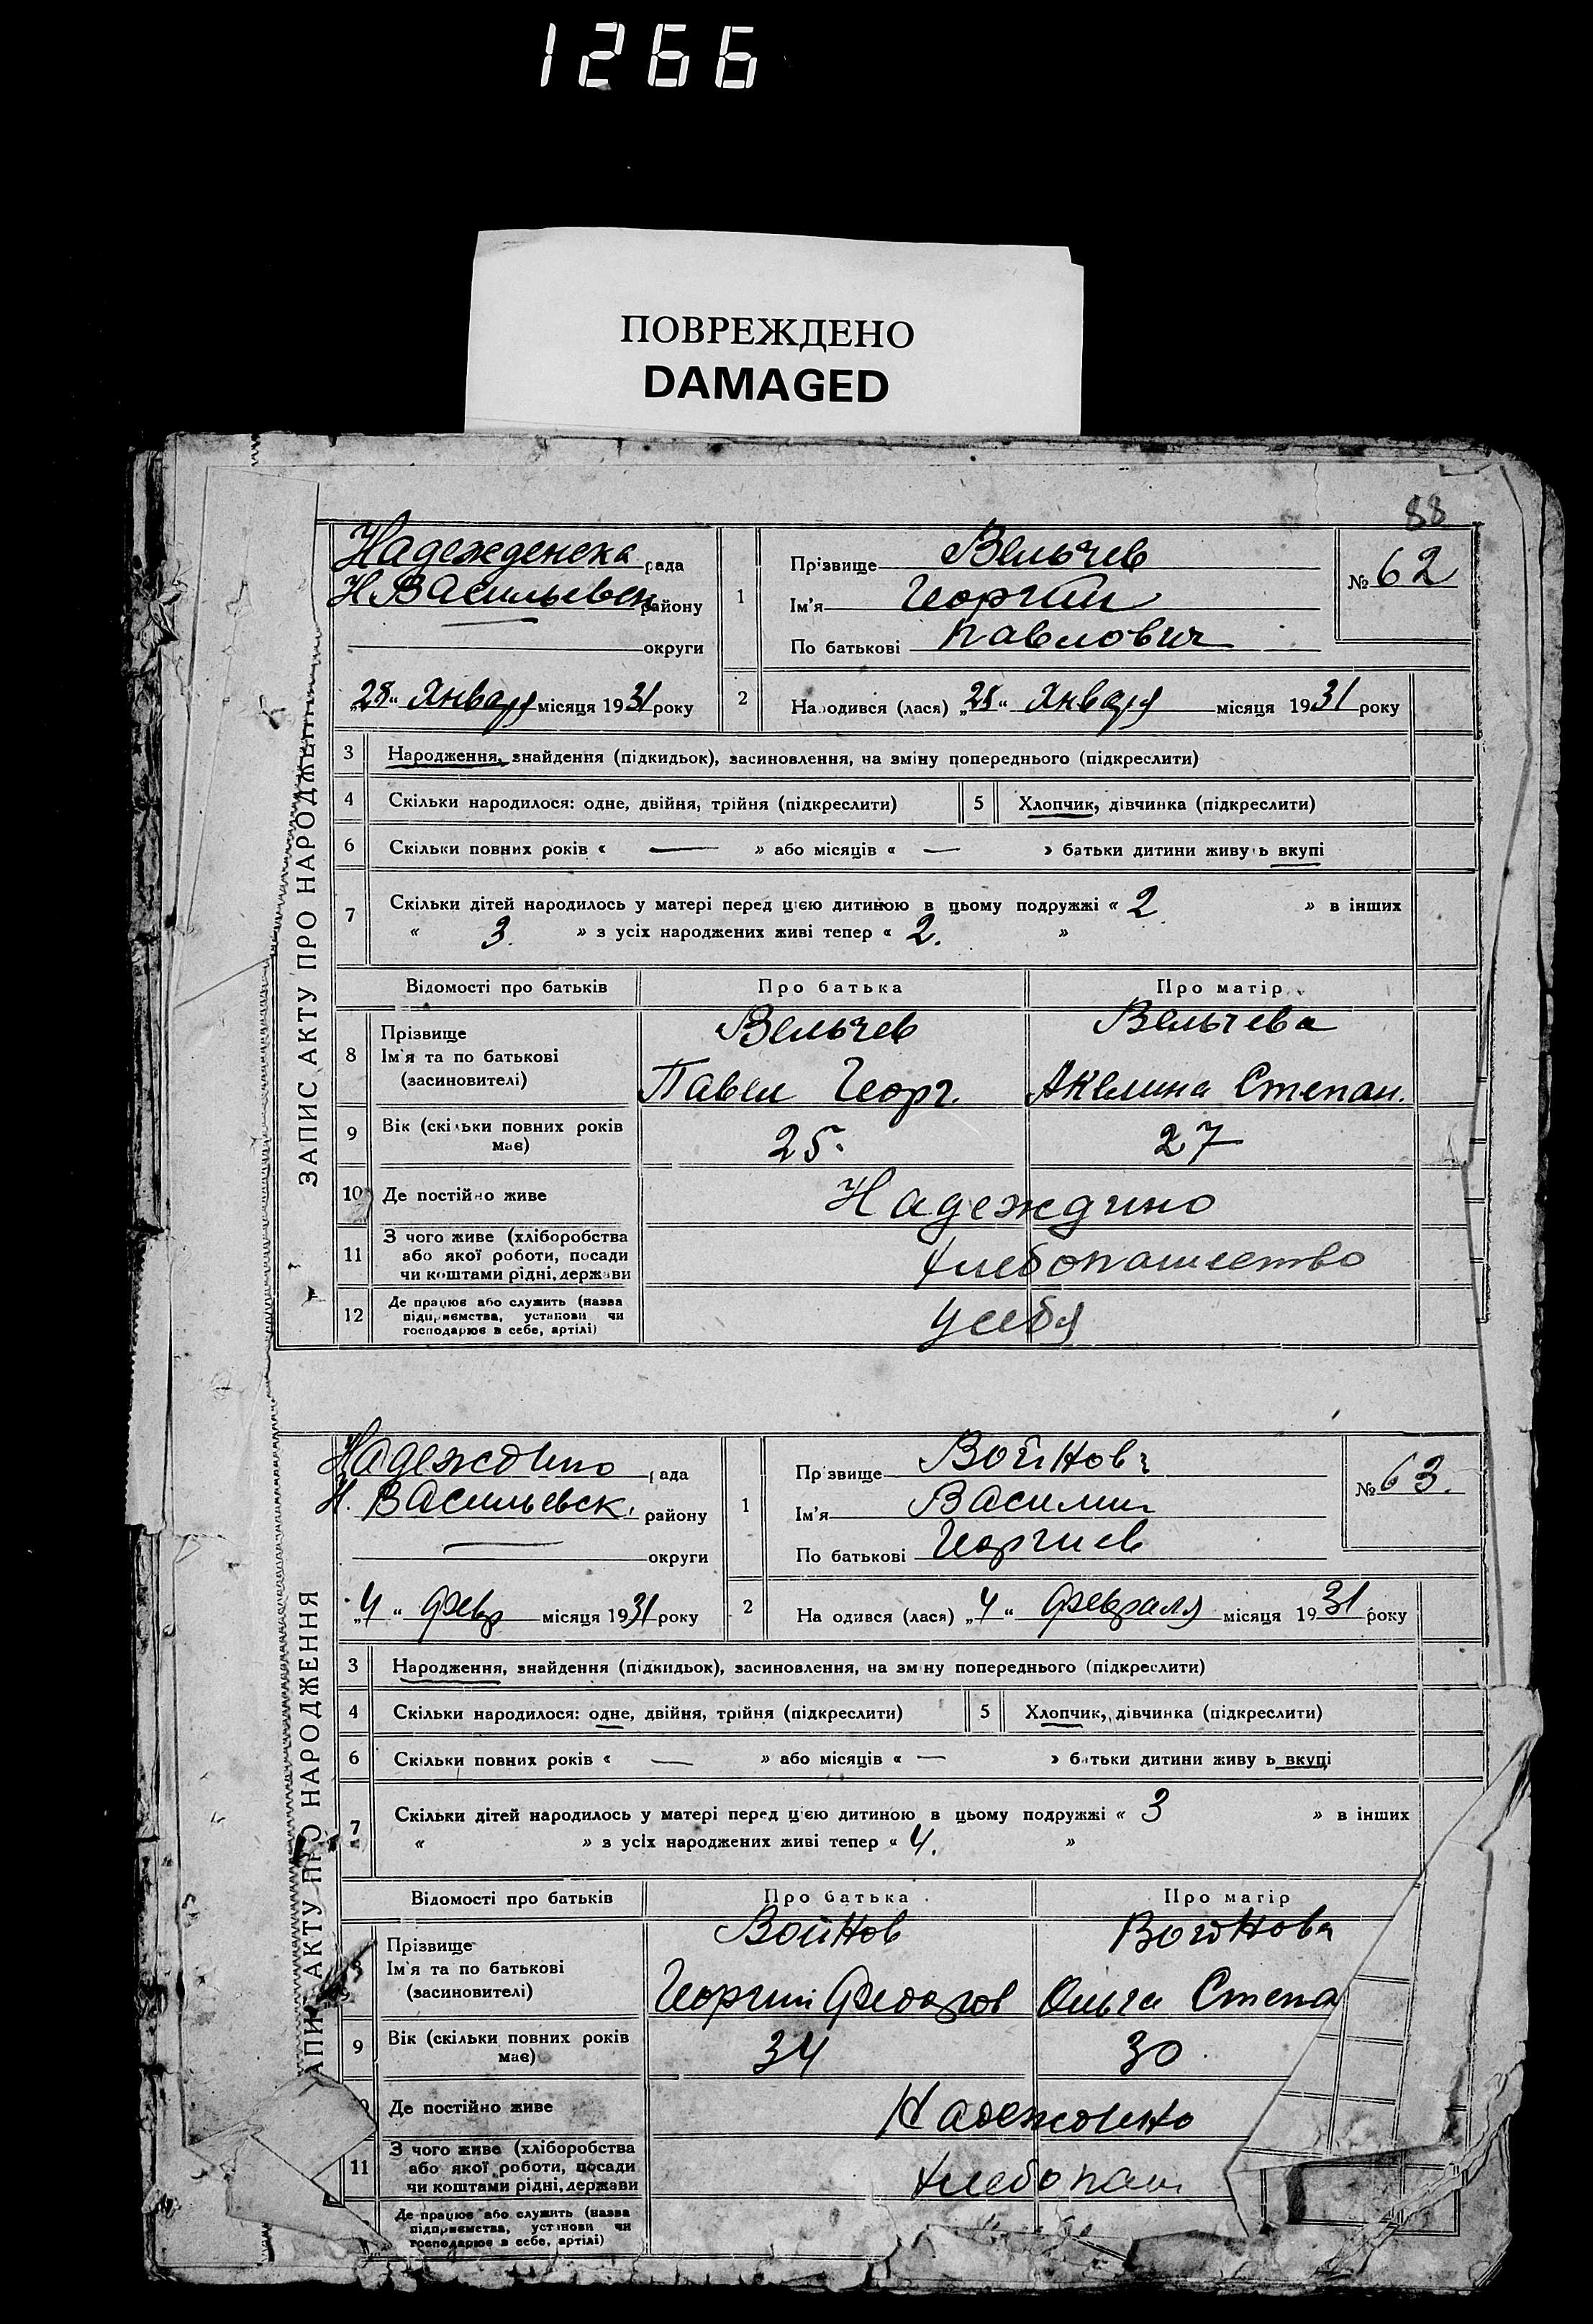 1266
ПОВРЕЖДЕНО
DAMAGED
88
ЗАПИС АКТУ ПРО НАРОДЖЕННЯ
Надежденска рада
Н. Васильевск району
округи
„28“ Января місяця 1931 року
1 Прізвище Вельчев
Ім'я Георгий
По батькові Павлович
№ 62
2 Народився (лася) „28“ Января місяця 1931 року
3 Народження, знайдення (підкидьок), засиновлення, на зміну попереднього (підкреслити)
4 Скільки народилося: одне, двійня, трійня (підкреслити) 5 Хлопчик, дівчинка (підкреслити)
6 Скільки повних років « — » або місяців « — » батьки дитини живуть вкупі
7 Скільки дітей народилось у матері перед цією дитиною в цьому подружжі « 2 » в інших
« 3. » з усіх народжених живі тепер « 2. »
Відомості про батьків Про батька Про матір
8 Прізвище Вельчев Вельчева
Ім'я та по батькові
(засиновителі) Павел Георг. Акелина Степан.
9 Вік (скільки повних років має) 25. 27
10 Де постійно живе Надеждино
11 З чого живе (хліборобства
або якої роботи, посади хлебопашество
чи коштами рідні, держави
12 Де працює або служить (назва
підприємства, установи чи у себя
господарює в себе, артілі)
ЗАПИС АКТУ ПРО НАРОДЖЕННЯ
Надеждино рада
Н. Васильевск. району
округи
„4“ Февр місяця 1931 року
1 Прізвище Войнов
Ім'я Василий
По батькові Георгиев
№ 63.
2 Народився (лася) „4“ Февраля місяця 1931 року
3 Народження, знайдення (підкидьок), засиновлення, на зміну попереднього (підкреслити)
4 Скільки народилося: одне, двійня, трійня (підкреслити) 5 Хлопчик, дівчинка (підкреслити)
6 Скільки повних років « — » або місяців « — » батьки дитини живуть вкупі
7 Скільки дітей народилось у матері перед цією дитиною в цьому подружжі « 3 » в інших
« » з усіх народжених живі тепер « 4. »
Відомості про батьків Про батька Про матір
8 Прізвище Войнов Войнова
Ім'я та по батькові
(засиновителі) Георгий Федоров Ольга Степа
9 Вік (скільки повних років має) 34 30
Де постійно живе Надеждино
11 З чого живе (хліборобства
або якої роботи, посади хлебопаш
чи коштами рідні, держави
Де працює або служить (назва
підприємства, установи чи
господарює в себе, артілі)